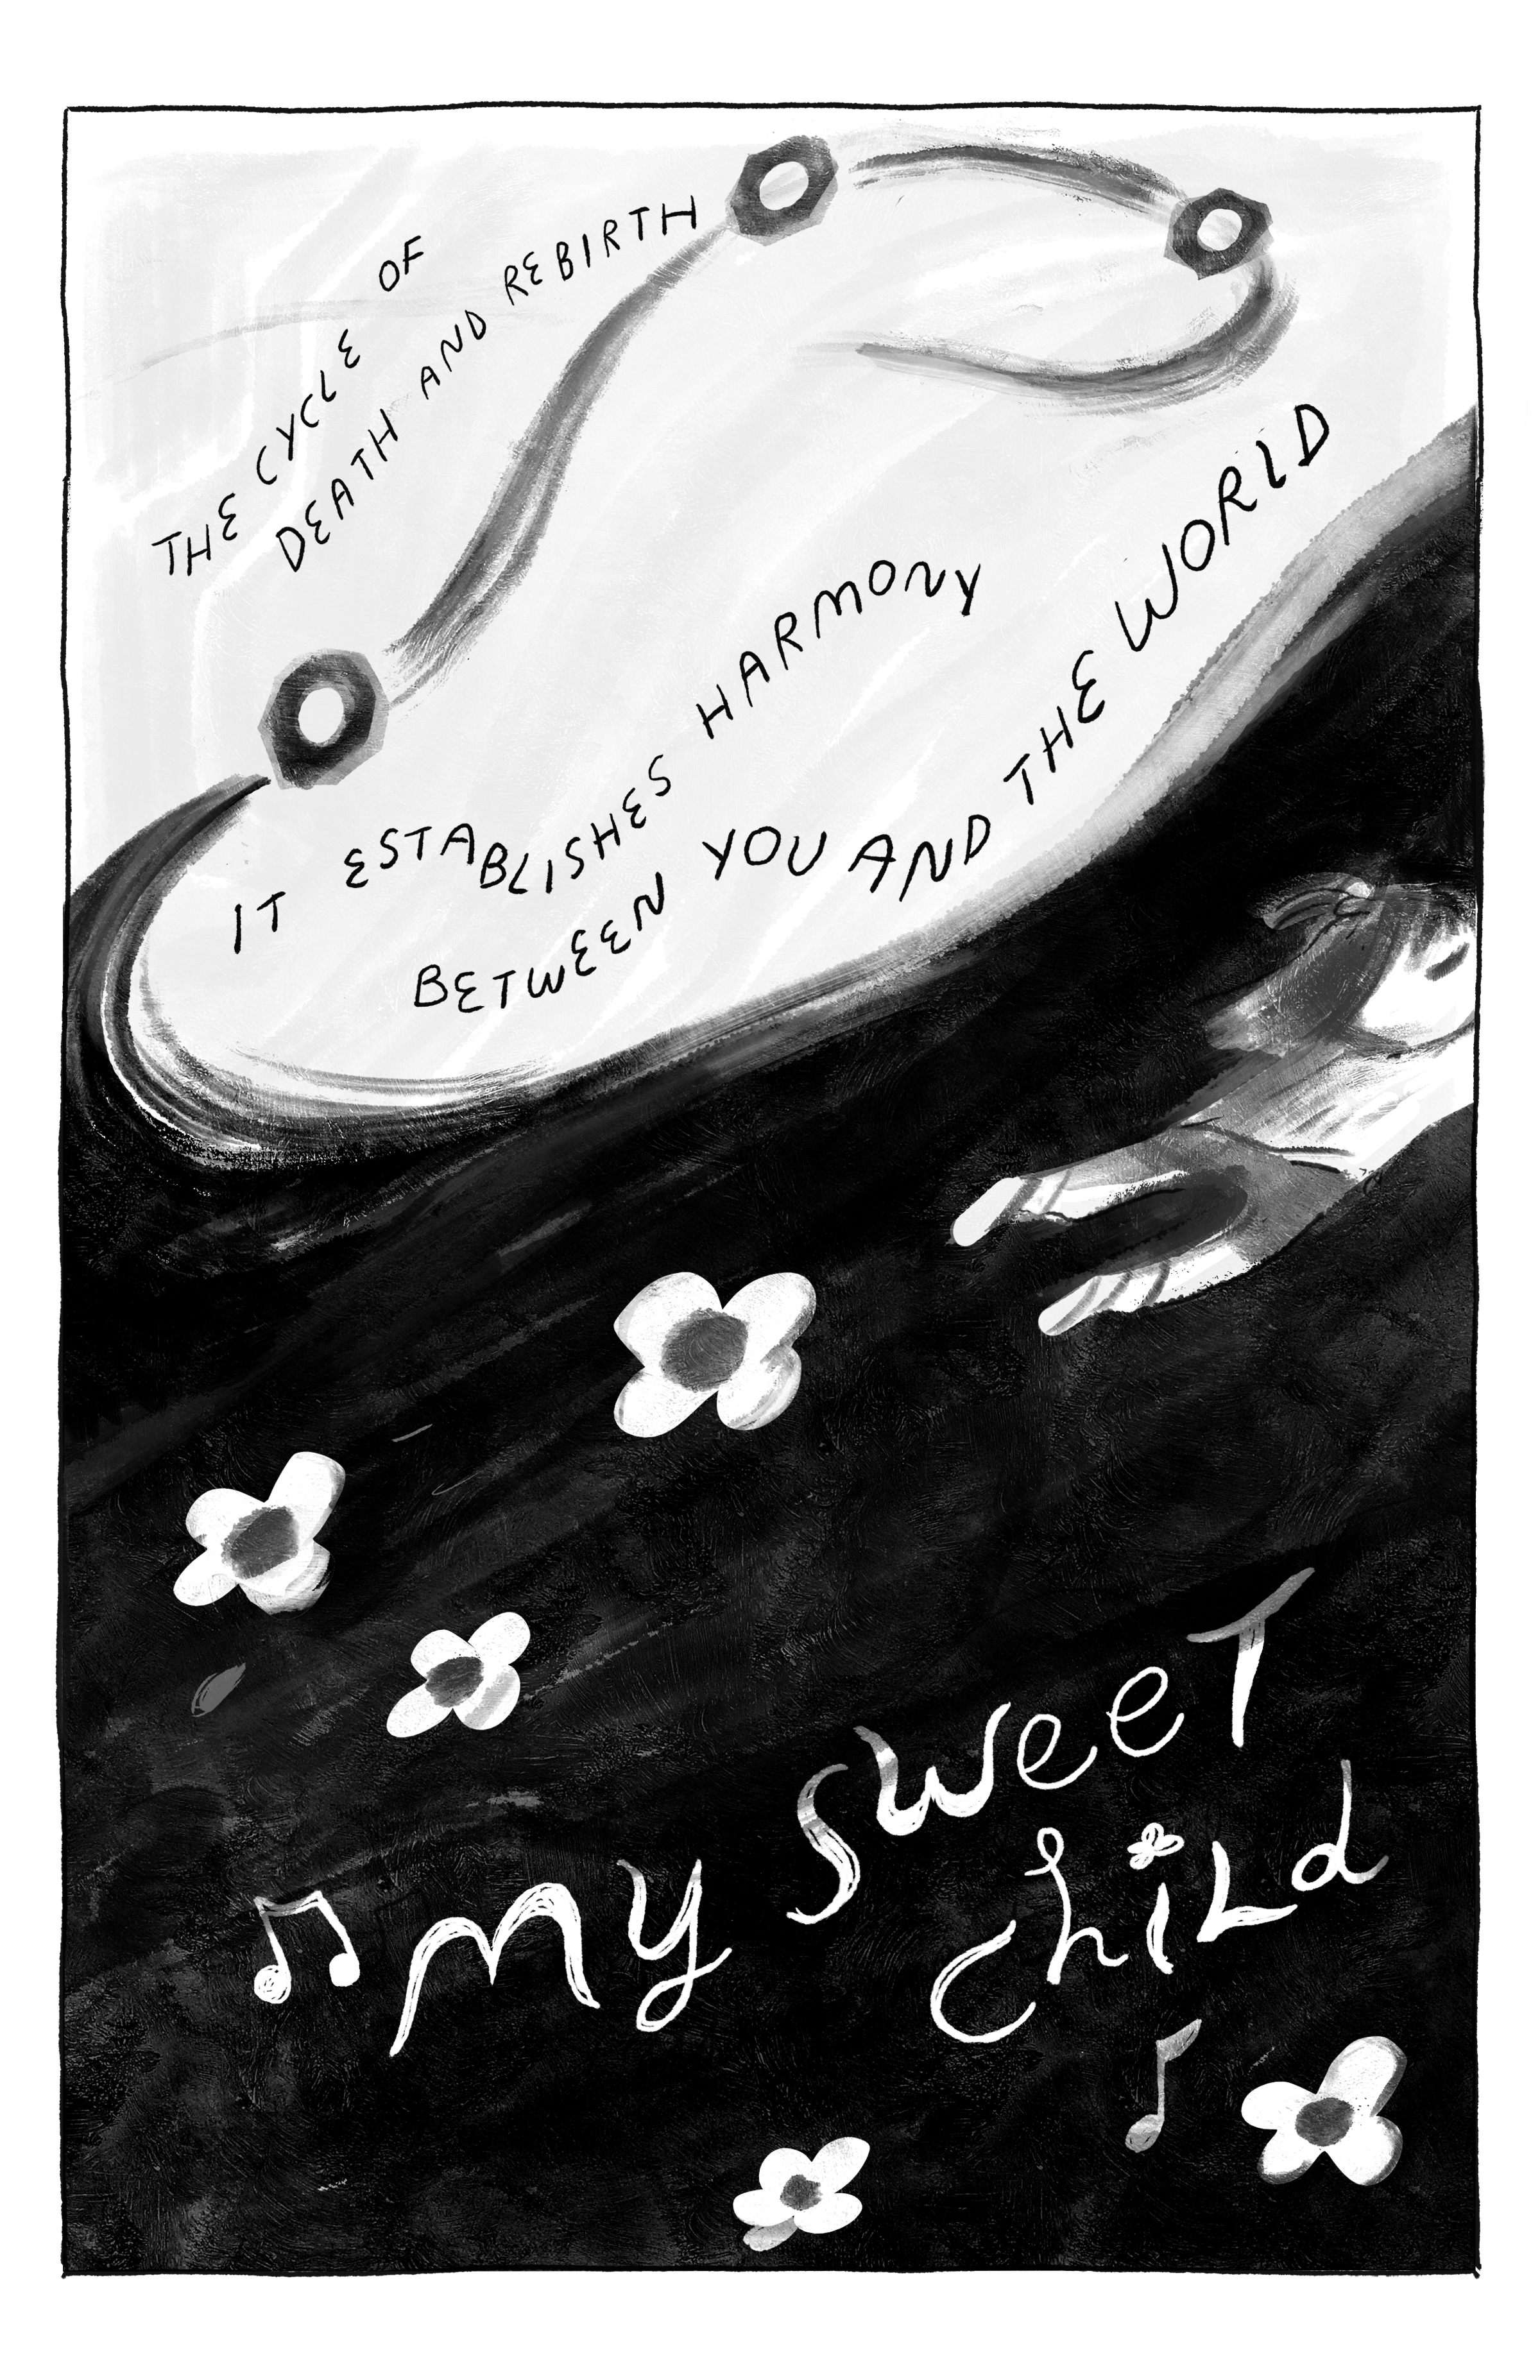 THE CYCLE OF
DEATH AND REBIRTH
IT ESTABLISHES HARMONY
BETWEEN YOU AND THE WORLD
♫ My SweeT
chiLd ♪